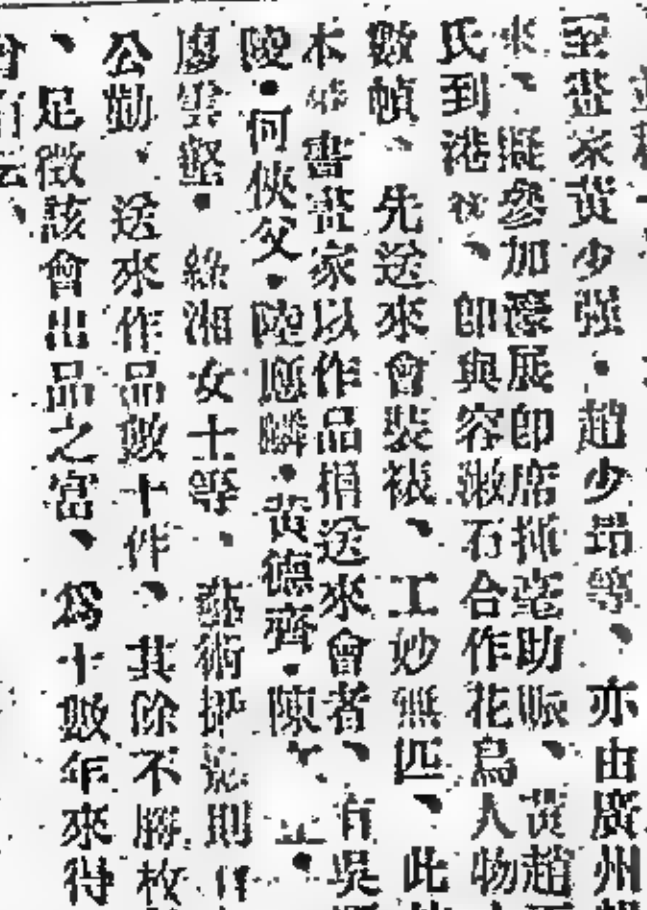 至畫家黃少强・趙少昂等、亦由廣州
來、擬參加濠展卽席揮毫助賑、黃趙
氏到港後、卽與容漱石合作花鳥人物
數幀、先送來會裝裱、工妙無匹、此
書畫家以作品捐送來會者、有吳
陵・何俠父・陸應麟・黃德齊・陳
廖雲壑・綠湘女士等、藝術
公勤、送來作品數十件、其除不勝枚
、足徵該會出品之富、爲十數年來得